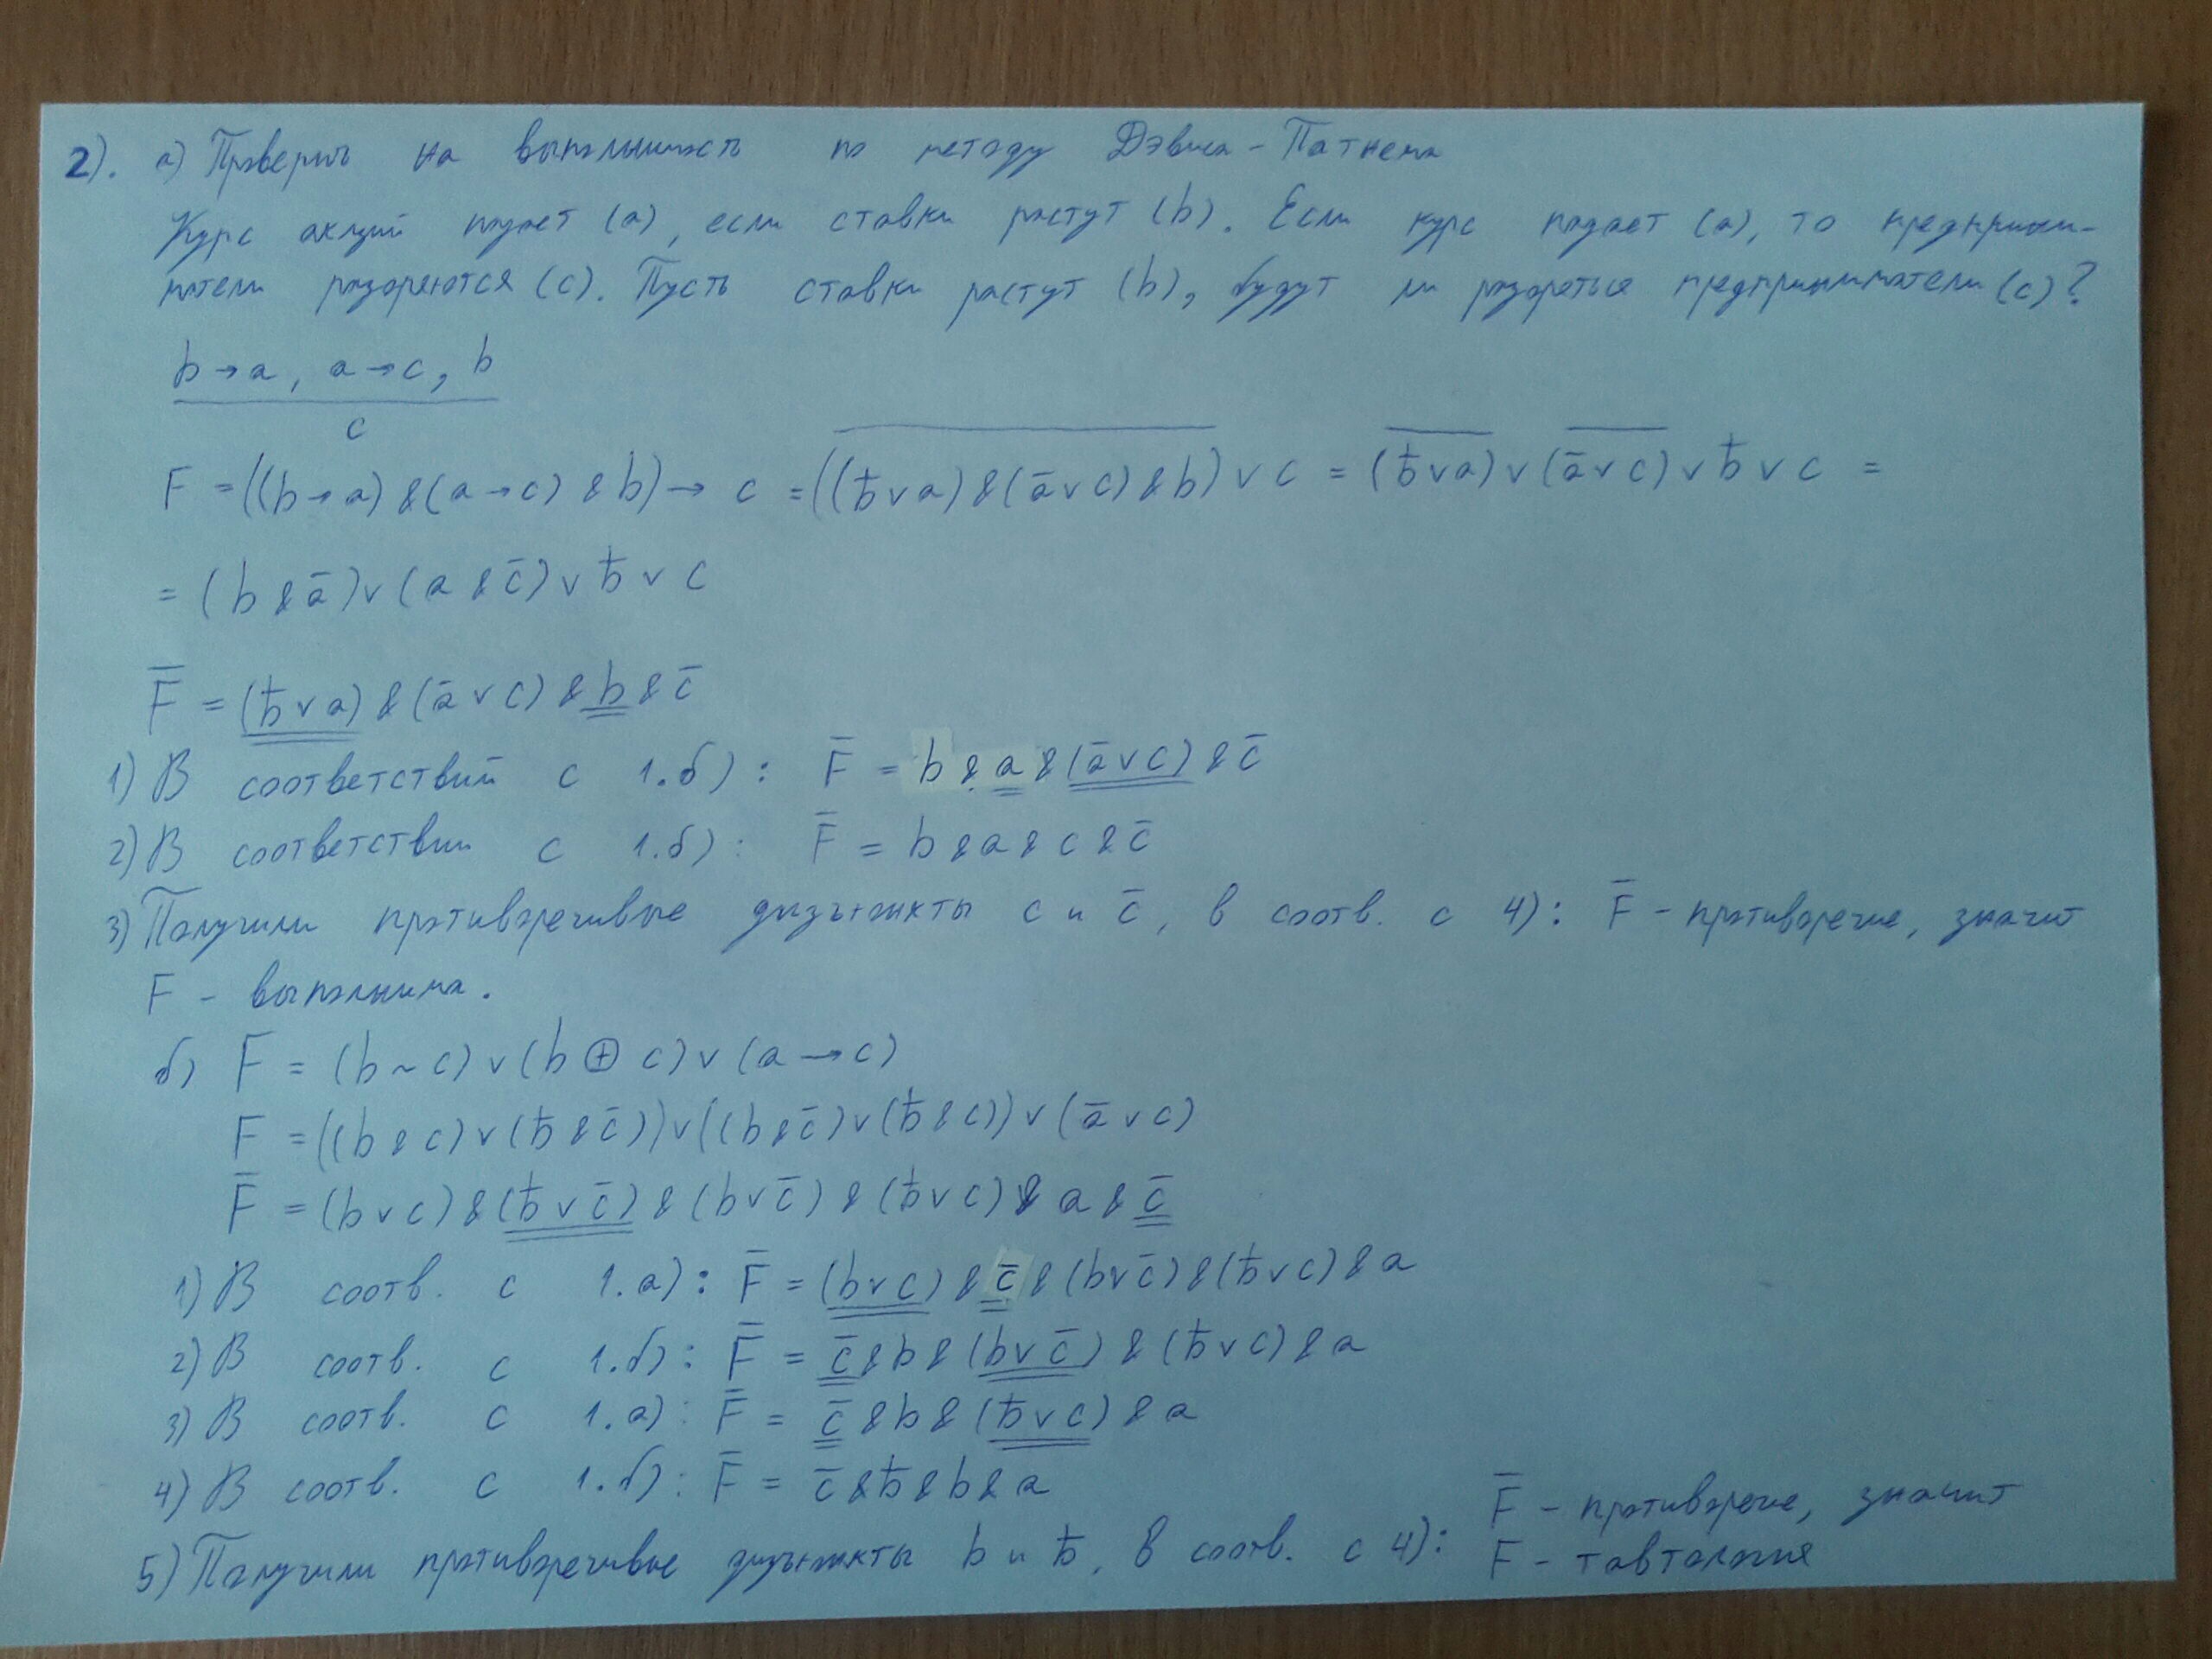 2). а) Проверить на выполнимость по методу Дэвиса-Патнема
Курс акций падает (a), если ставки растут (b). Если курс падает (a), то предприни-
матели разоряются (c). Пусть ставки растут (b), будут ли разоряться предприниматели (c)?
b→a, a→c, b
c
F = ((b→a) & (a→c) & b) → c = \overline{((b̄∨a) & (ā∨c) & b)} ∨ c = \overline{(b̄∨a)} ∨ \overline{(ā∨c)} ∨ b̄ ∨ c =
= (b & ā) ∨ (a & c̄) ∨ b̄ ∨ c
F̄ = (b̄∨a) & (ā∨c) & b & c̄
1) В соответствий с 1.б): F̄ = b & a & (ā∨c) & c̄
2) В соответствии с 1.б): F̄ = b & a & c & c̄
3) Получили противоречивые дизъюнкты c и c̄, в соотв. с 4): F̄ - противоречие, значит
F - выполнима.
б) F = (b ~ c) ∨ (b ⊕ c) ∨ (a → c)
F = ((b & c) ∨ (b̄ & c̄)) ∨ ((b & c̄) ∨ (b̄ & c)) ∨ (ā ∨ c)
F̄ = (b∨c) & (b̄∨c̄) & (b∨c̄) & (b̄∨c) & a & c̄
1) В соотв. с 1.а): F̄ = (b∨c) & c̄ & (b∨c̄) & (b̄∨c) & a
2) В соотв. с 1.б): F̄ = c̄ & b & (b∨c̄) & (b̄∨c) & a
3) В соотв. с 1.а): F̄ = c̄ & b & (b̄∨c) & a
4) В соотв. с 1.б): F̄ = c̄ & b̄ & b & a
5) Получили противоречивые дизъюнкты b и b̄, в соотв. с 4): F̄ - противоречие, значит
F - тавтология